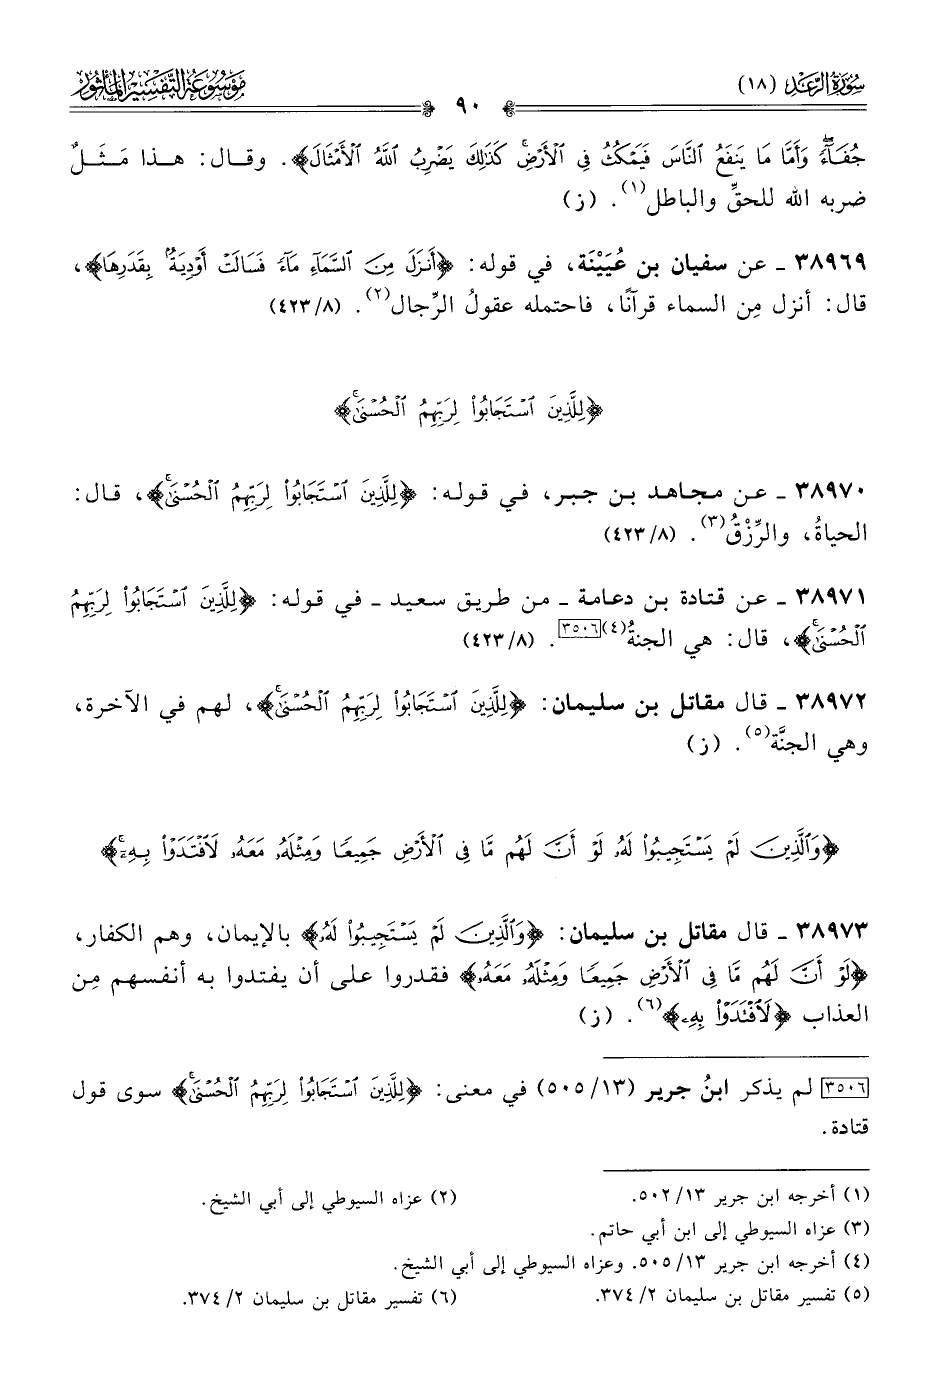 سُورَةُ الرَّعْدِ (١٨)
٩٠
مَوْسُوعَةُ التَّفْسِيرِ المَأْثُورِ
جُفَآءً ۖ وَأَمَّا مَا يَنفَعُ ٱلنَّاسَ فَيَمْكُثُ فِى ٱلْأَرْضِ ۚ كَذَٰلِكَ يَضْرِبُ ٱللَّهُ ٱلْأَمْثَالَ﴾. وقال: هذا مَثَلٌ
ضربه الله للحقِّ والباطل(١). (ز)
٣٨٩٦٩ ـ عن سفيان بن عُيَيْنَة، في قوله: ﴿أَنزَلَ مِنَ ٱلسَّمَآءِ مَآءً فَسَالَتْ أَوْدِيَةٌۢ بِقَدَرِهَا﴾،
قال: أنزل مِن السماء قرآنًا، فاحتمله عقولُ الرِّجال(٢). (٨/ ٤٢٣)
﴿لِلَّذِينَ ٱسْتَجَابُوا۟ لِرَبِّهِمُ ٱلْحُسْنَىٰ ۚ﴾
٣٨٩٧٠ ـ عن مجاهد بن جبر، في قوله: ﴿لِلَّذِينَ ٱسْتَجَابُوا۟ لِرَبِّهِمُ ٱلْحُسْنَىٰ ۚ﴾، قال:
الحياةُ، والرِّزْقُ(٣). (٨/ ٤٢٣)
٣٨٩٧١ ـ عن قتادة بن دعامة ـ من طريق سعيد ـ في قوله: ﴿لِلَّذِينَ ٱسْتَجَابُوا۟ لِرَبِّهِمُ
ٱلْحُسْنَىٰ ۚ﴾، قال: هي الجنةُ(٤)[٣٥٠٦]. (٨/ ٤٢٣)
٣٨٩٧٢ ـ قال مقاتل بن سليمان: ﴿لِلَّذِينَ ٱسْتَجَابُوا۟ لِرَبِّهِمُ ٱلْحُسْنَىٰ ۚ﴾، لهم في الآخرة،
وهي الجنَّة(٥). (ز)
﴿وَٱلَّذِينَ لَمْ يَسْتَجِيبُوا۟ لَهُۥ لَوْ أَنَّ لَهُم مَّا فِى ٱلْأَرْضِ جَمِيعًا وَمِثْلَهُۥ مَعَهُۥ لَٱفْتَدَوْا۟ بِهِۦٓ ۚ﴾
٣٨٩٧٣ ـ قال مقاتل بن سليمان: ﴿وَٱلَّذِينَ لَمْ يَسْتَجِيبُوا۟ لَهُۥ﴾ بالإيمان، وهم الكفار،
﴿لَوْ أَنَّ لَهُم مَّا فِى ٱلْأَرْضِ جَمِيعًا وَمِثْلَهُۥ مَعَهُۥ﴾ فقدروا على أن يفتدوا به أنفسهم مِن
العذاب ﴿لَٱفْتَدَوْا۟ بِهِۦ﴾(٦). (ز)
[٣٥٠٦] لم يذكر ابنُ جرير (١٣/ ٥٠٥) في معنى: ﴿لِلَّذِينَ ٱسْتَجَابُوا۟ لِرَبِّهِمُ ٱلْحُسْنَىٰ ۚ﴾ سوى قول
قتادة.
(١) أخرجه ابن جرير ١٣/ ٥٠٢. (٢) عزاه السيوطي إلى أبي الشيخ.
(٣) عزاه السيوطي إلى ابن أبي حاتم.
(٤) أخرجه ابن جرير ١٣/ ٥٠٥. وعزاه السيوطي إلى أبي الشيخ.
(٥) تفسير مقاتل بن سليمان ٢/ ٣٧٤. (٦) تفسير مقاتل بن سليمان ٢/ ٣٧٤.